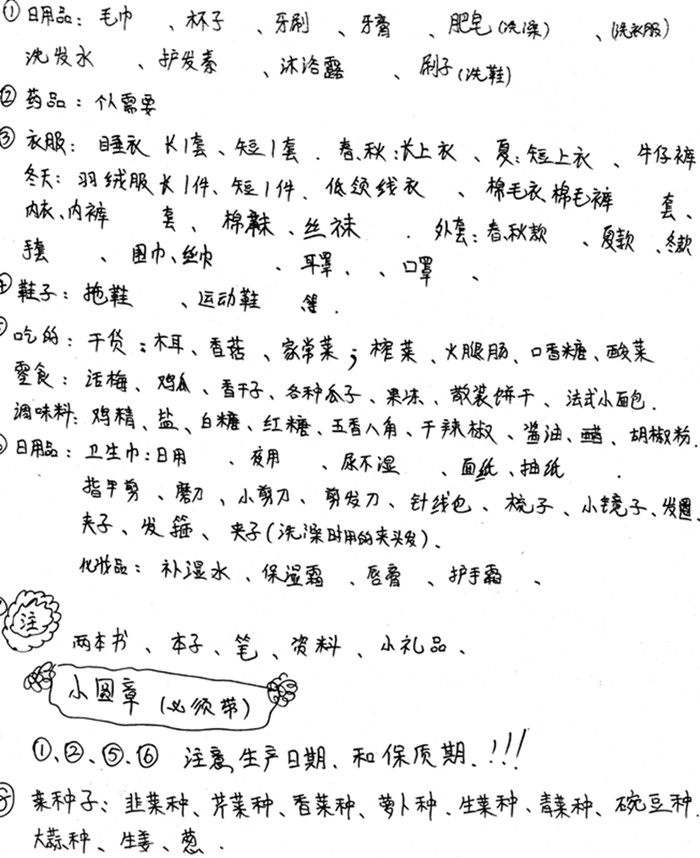 ①日用品：毛巾 、杯子 、牙刷 、牙膏 、肥皂(洗澡) 、(洗衣服)
洗发水 、护发素 、沐浴露 、刷子(洗鞋)
②药品：个人需要
③衣服：睡衣 长1套、短1套. 春、秋:长上衣 、夏:短上衣 、牛仔裤
冬天：羽绒服长1件、短1件. 低领线衣 、棉毛衣棉毛裤 套、
内衣、内裤 套、棉袜、丝袜 . 外套：春、秋款 、夏款 、冬款
手套 、围巾、丝巾 、耳罩、 、口罩 、
鞋子：拖鞋 、运动鞋 等.
吃的：干货：木耳、香菇 、家常菜；榨菜、火腿肠、口香糖、酸菜
零食：话梅、鸡爪、香干子、各种瓜子、果冻、散装饼干、法式小面包.
调味料：鸡精、盐、白糖、红糖、五香八角、干辣椒、酱油、醋、胡椒粉.
日用品：卫生巾:日用 、夜用 、尿不湿 、面纸、抽纸 .
指甲剪、磨刀、小剪刀、剪发刀、针线包、梳子、小镜子、发圈、
夹子、发箍、夹子(洗澡时用的夹头发)、
化妆品：补湿水、保湿霜 、唇膏 、护手霜 、
注
两本书、本子、笔、资料、小礼品、
小图章 (必须带)
①、②、⑤、⑥ 注意生产日期、和保质期.!!!
菜种子：韭菜种、芹菜种、香菜种、萝卜种、生菜种、青菜种、碗豆种.
大蒜种、生姜、葱.